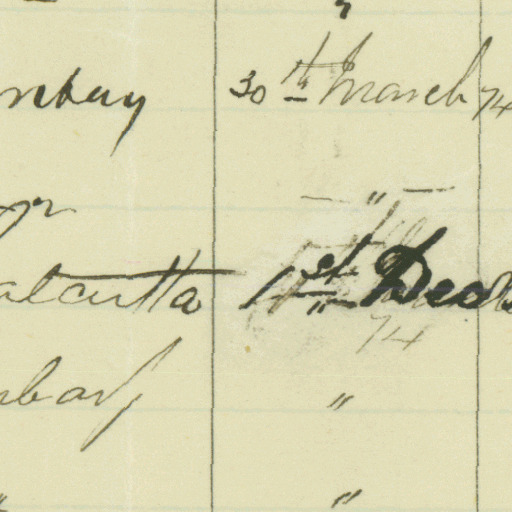 "
mbay 30th March 74
— " —
alcutta 1st Dec
74
mbay "
" "